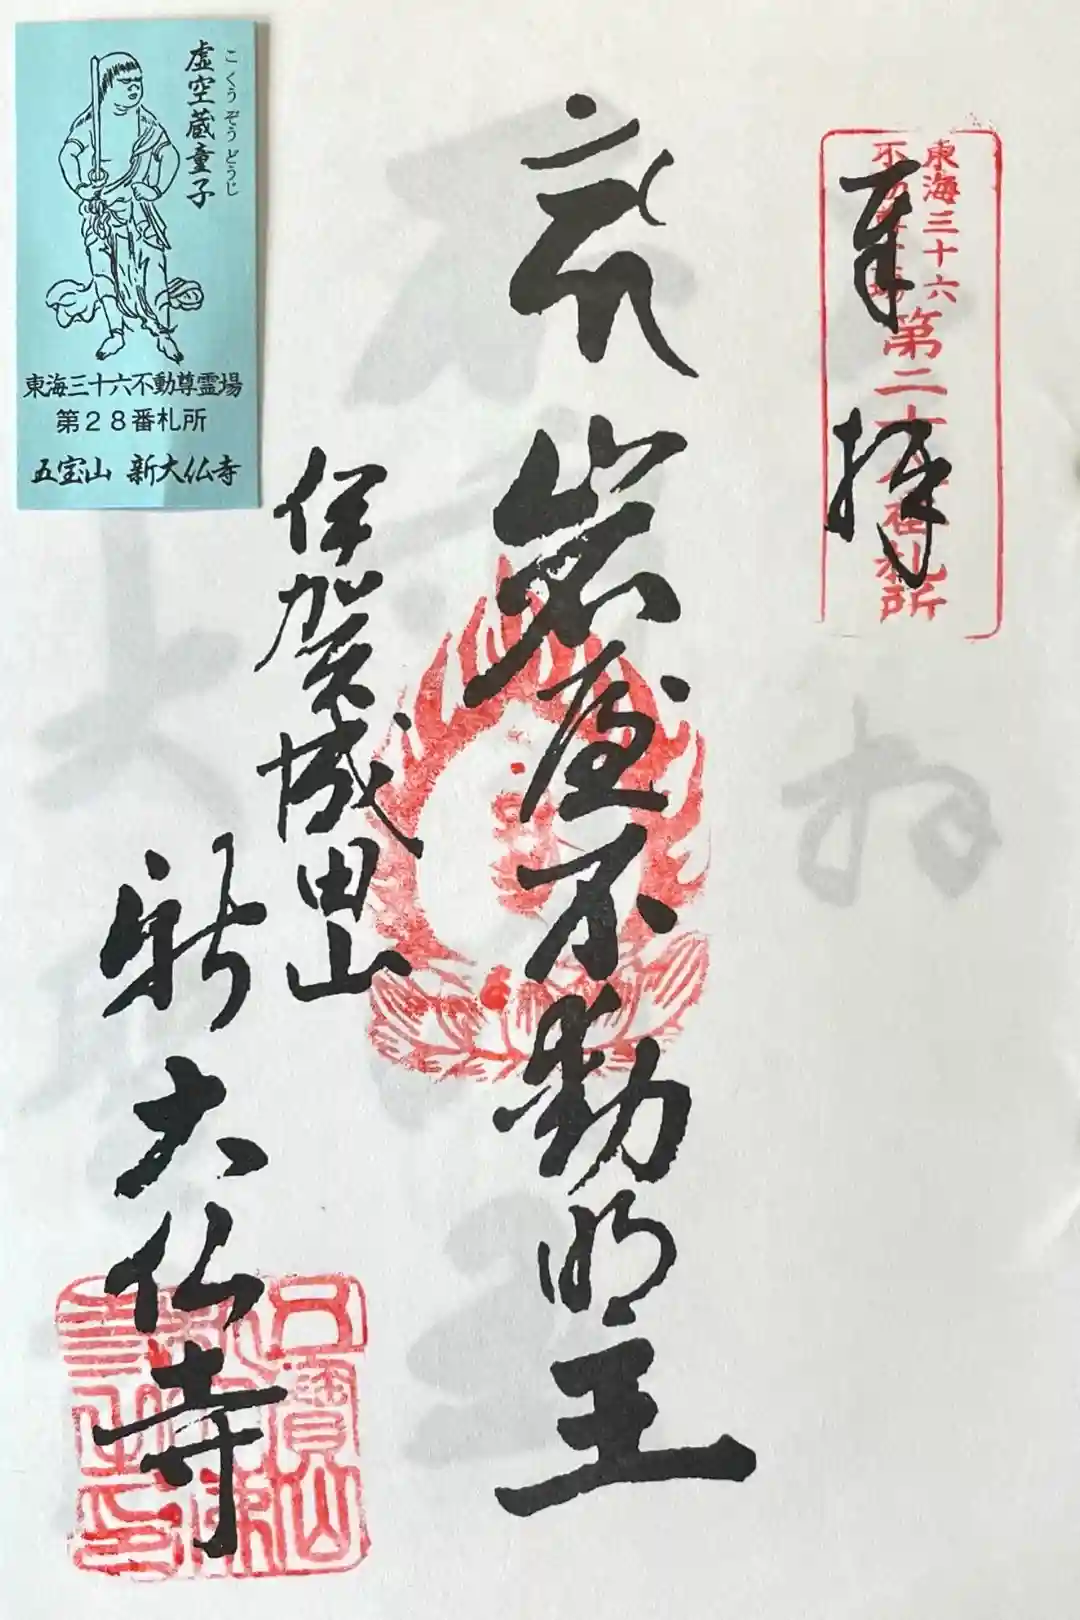 虚空蔵童子
こくうぞうどうじ
東海三十六不動尊霊場
第28番札所
五宝山 新大仏寺
東海三十六
不動尊霊場
第二十八番札所
奉拝
岩屋不動明王
伊賀成田山
新大仏寺
五寳山